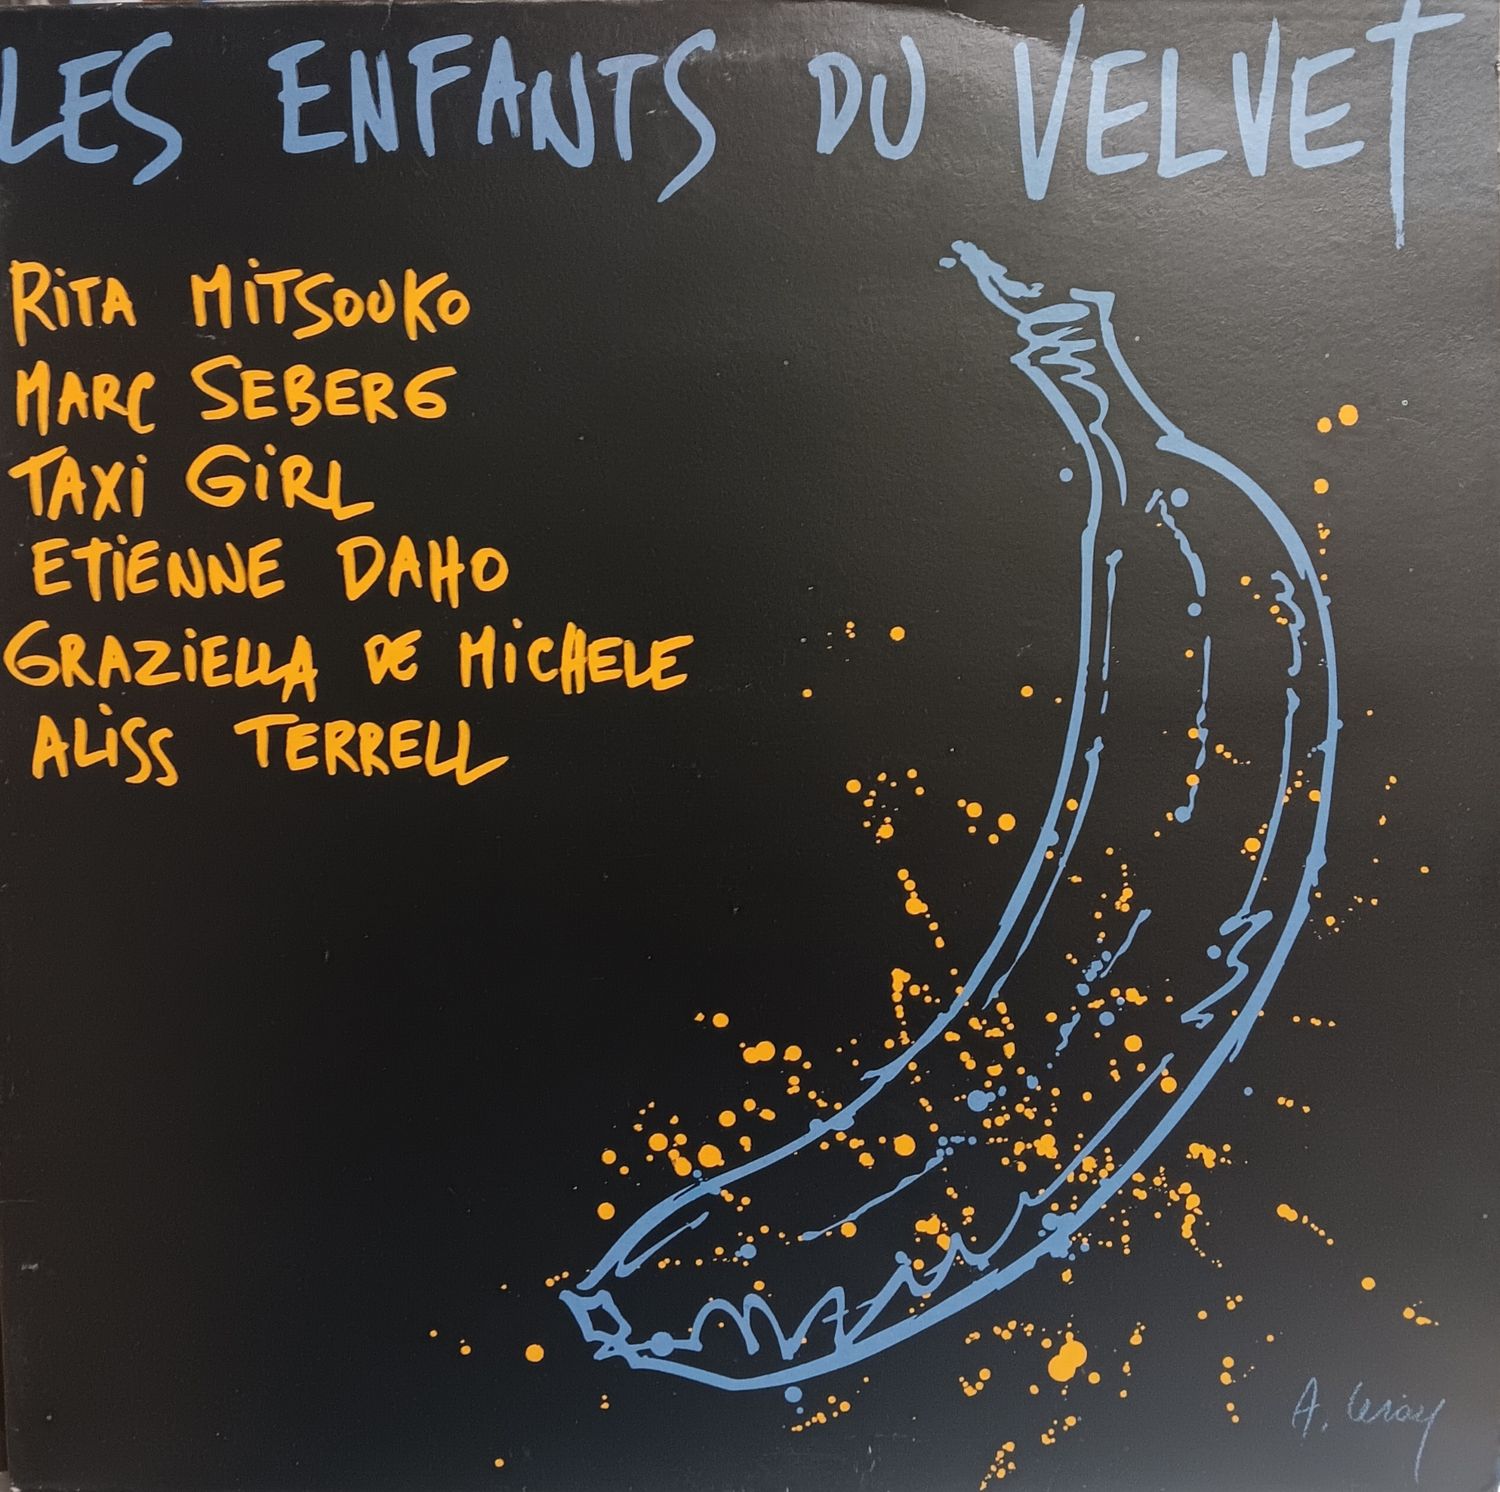 LES ENFANTS DU VELVET
RiTA MiTSOUKO
MARC SEBERG
TAXi GiRL
ETiENNE DAHO
GRAZiELLA DE MiCHELE
ALiSS TERRELL
A. Leray